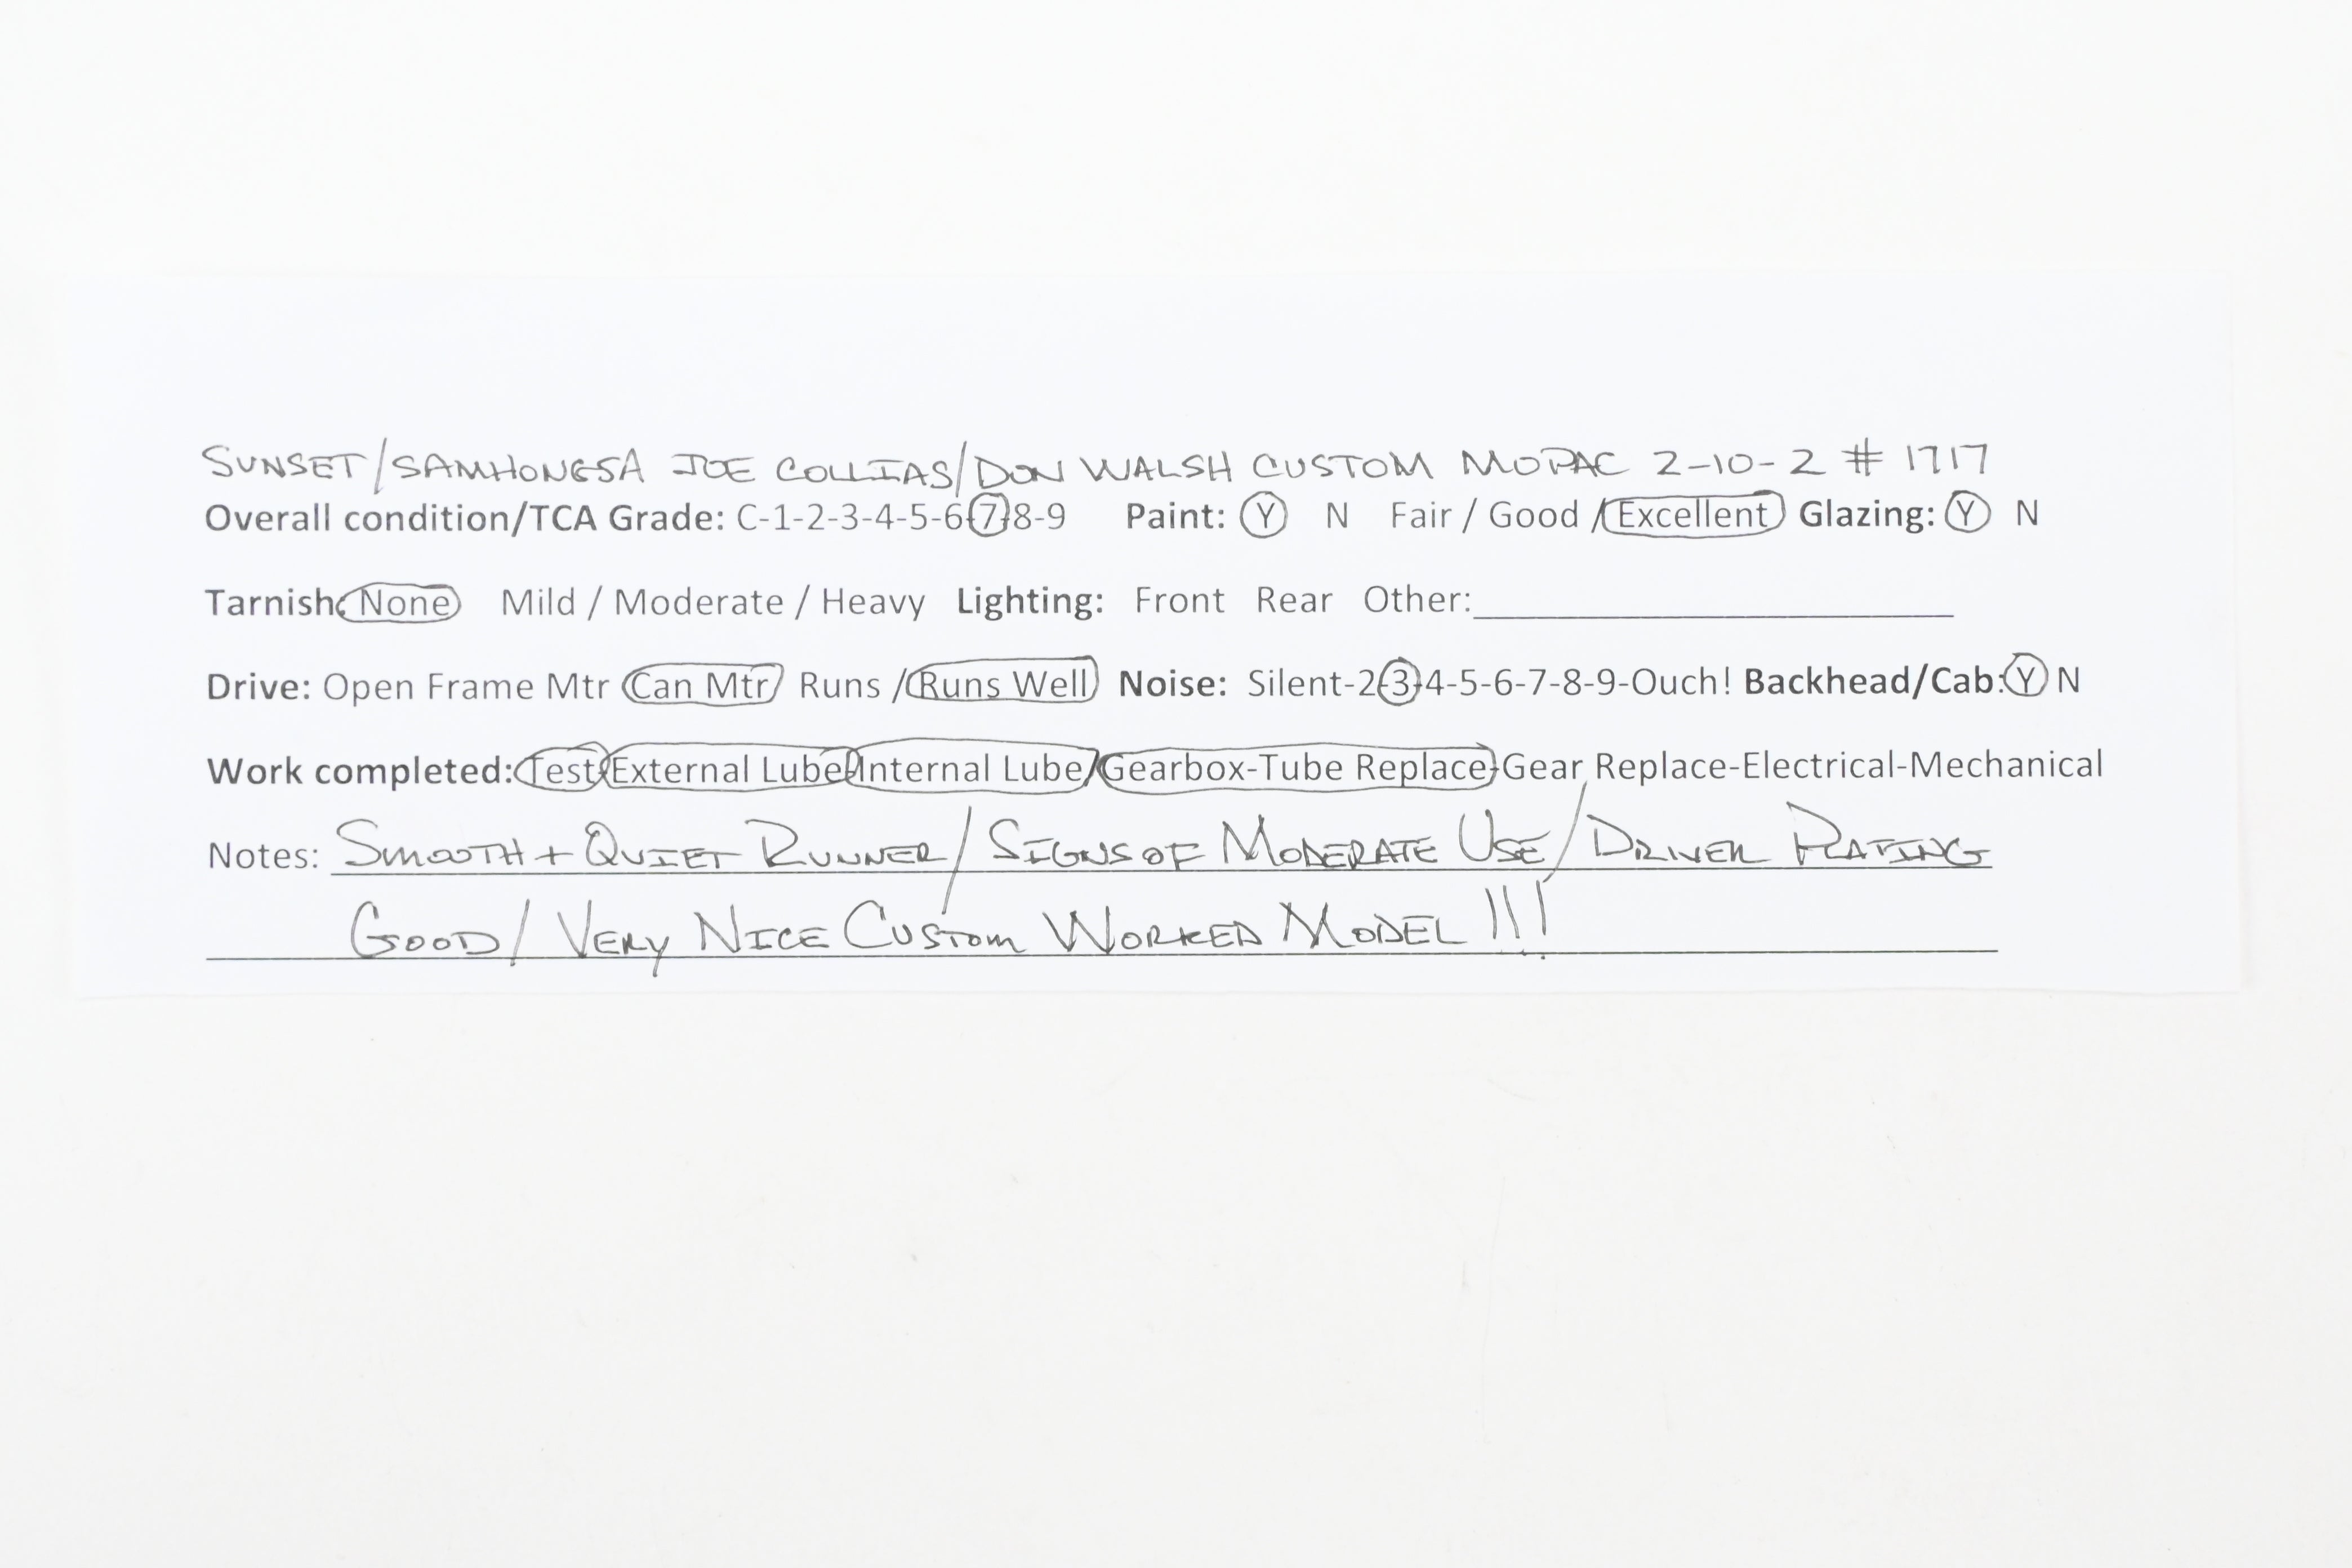 SUNSET/SAMHONGSA JOE COLLIAS/DON WALSH CUSTOM MOPAC 2-10-2 # 1717
Overall condition/TCA Grade: C-1-2-3-4-5-6-7-8-9 Paint: Y N Fair / Good / Excellent Glazing: Y N
Tarnish: None Mild / Moderate / Heavy Lighting: Front Rear Other:
Drive: Open Frame Mtr Can Mtr Runs / Runs Well Noise: Silent-2-3-4-5-6-7-8-9-Ouch! Backhead/Cab: Y N
Work completed: Test-External Lube-Internal Lube/Gearbox-Tube Replace-Gear Replace-Electrical-Mechanical
Notes: SMOOTH + QUIET RUNNER/SIGNS OF MODERATE USE/DRIVER PLATING
GOOD/VERY NICE CUSTOM WORKED MODEL!!!